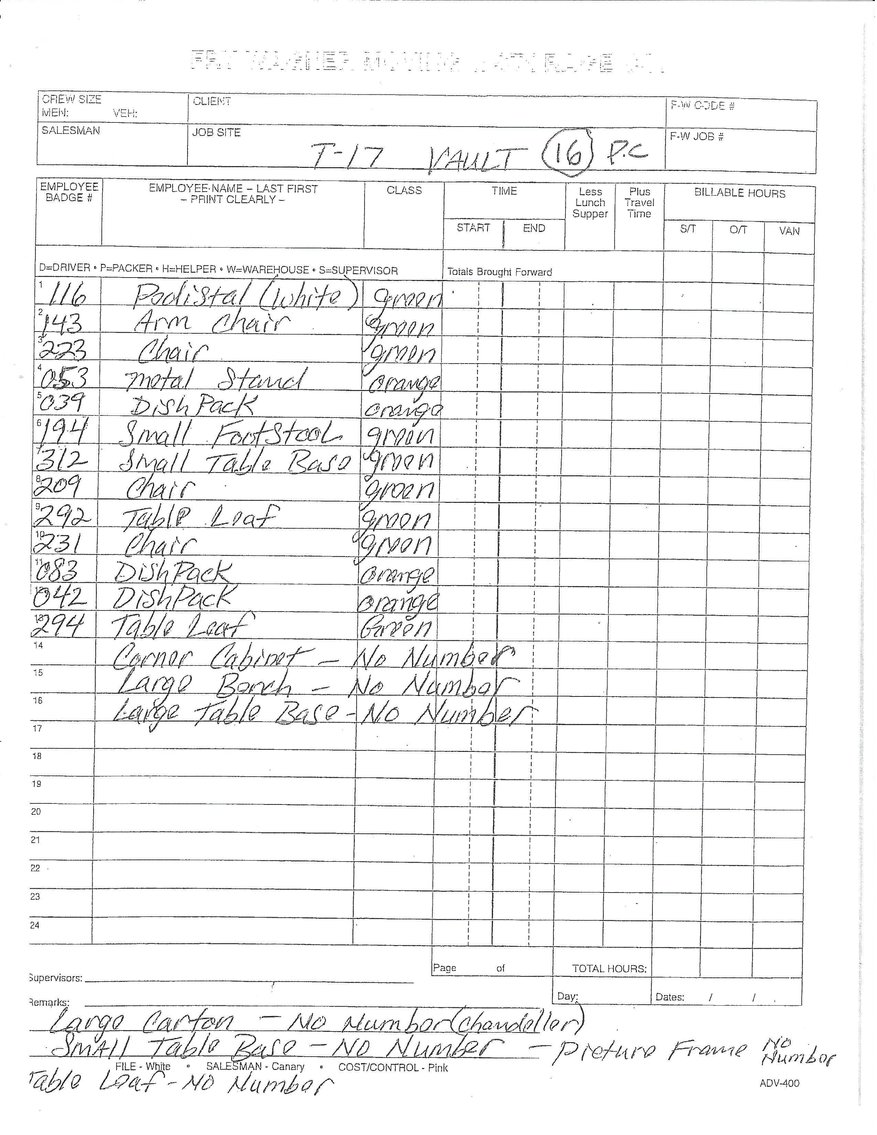 CREW SIZE CLIENT F-W CODE #
MEN: VEH:
SALESMAN JOB SITE F-W JOB #
T-17 VAULT 16 P.C
EMPLOYEE BADGE # EMPLOYEE-NAME – LAST FIRST – PRINT CLEARLY – CLASS TIME Less Lunch Supper Plus Travel Time BILLABLE HOURS
START END S/T O/T VAN
D=DRIVER • P=PACKER • H=HELPER • W=WAREHOUSE • S=SUPERVISOR Totals Brought Forward
1 116 Podistal (White) green
2 143 Arm Chair green
3 223 Chair green
4 053 metal Stand orange
5 039 DishPack orange
6 194 Small FootStool green
7 312 Small Table Base green
8 209 Chair green
9 292 Table Leaf green
10 231 Chair green
11 083 DishPack orange
12 042 DishPack orange
13 294 Table Leaf Green
14 Corner Cabinet – No Number
15 Large Bench – No Number
16 Large Table Base – No Number
17
18
19
20
21
22
23
24
Page of TOTAL HOURS:
Supervisors:
Remarks: Day: Dates: / /
Large Carton – No Number (Chandelier)
Small Table Base – No Number – Picture Frame No Number
FILE - White • SALESMAN - Canary • COST/CONTROL - Pink
Table Leaf - No Number
ADV-400